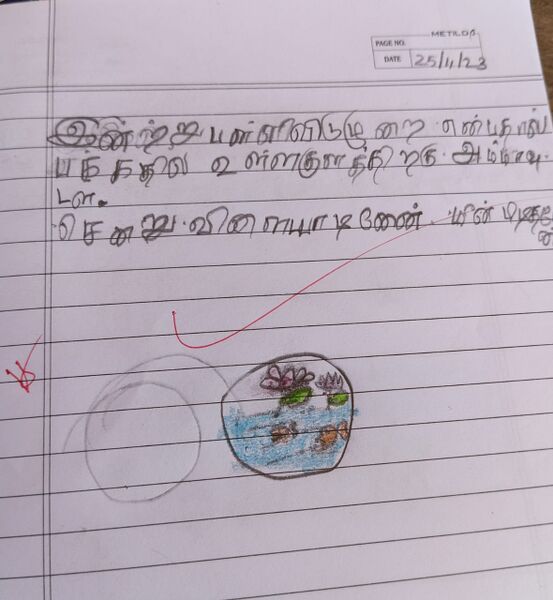 METILDA
PAGE NO.
DATE 25/4/23
இன்று பள்ளிவிடுமுறை என்பதால்
பக்கதில் உள்ளகுளத்திற்கு அம்மாவு
டன்.
சென்று விளையாடினேன். மீன் பிடித்